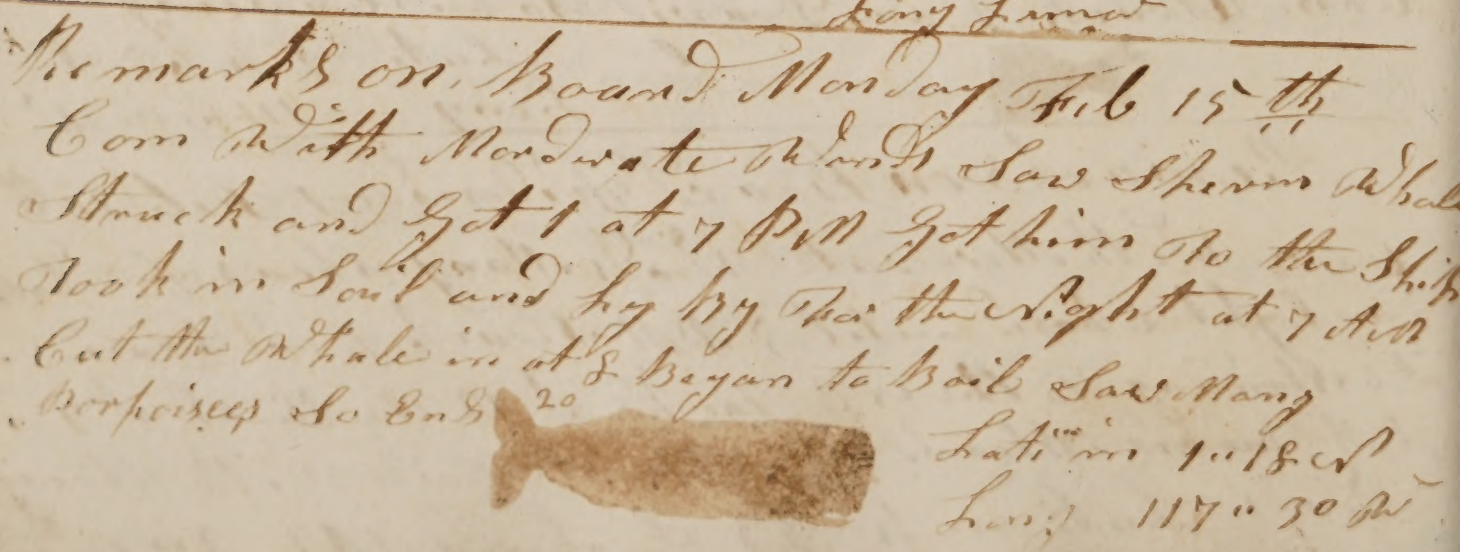 Remarks on Board Monday Feb 15th
Com With Mordurate Winds Saw Sherm Whal
Struck and Got 1 at 7 PM Got him To the Ship
Took in Sail and Ly By For the Night at 7 AM
Cut the Whale in at 8 Began to Boil Saw Many
Porpoises So Ends 20
Lati in 1" 18 N
Long 117" 30 W